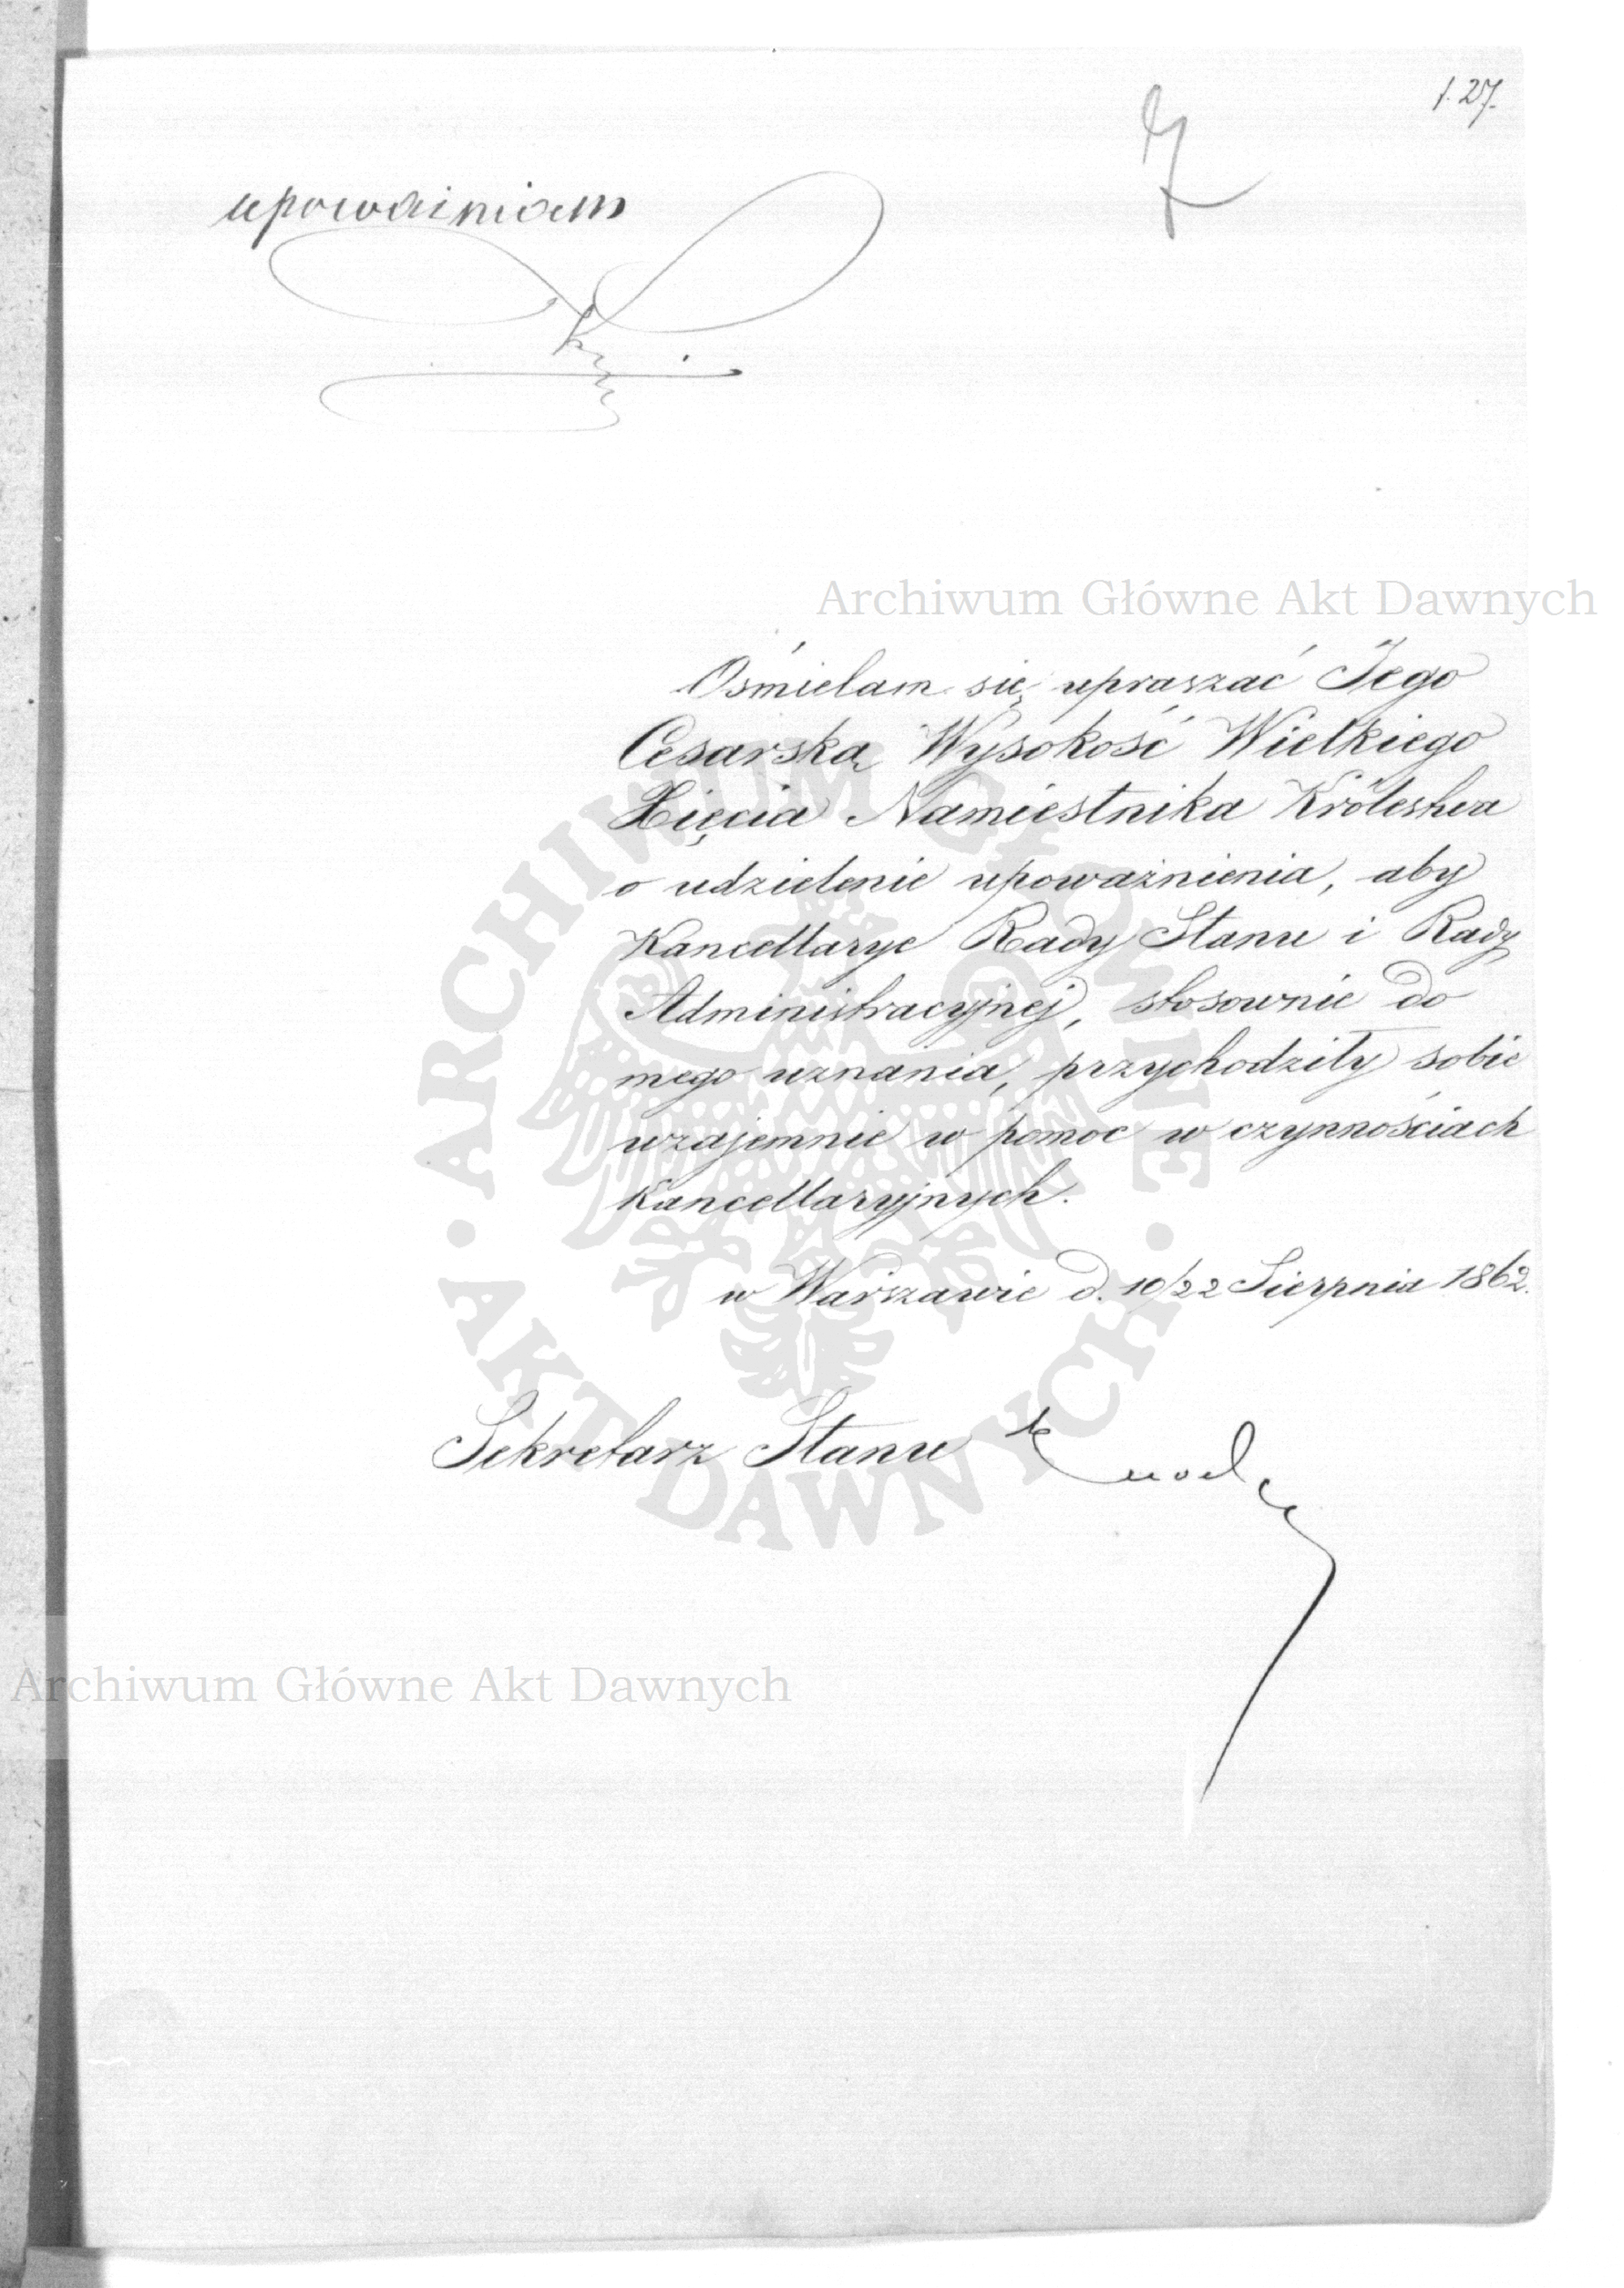 1.27.
7
upoważniam
Archiwum Główne Akt Dawnych
Ośmielam się upraszać Jego
Cesarską Wysokość Wielkiego
Xięcia Namiestnika Królestwa
o udzielenie upoważnienia, aby
Kancellarye Rady Stanu i Rady
Administracyjnej, stosownie do
mego uznania, przychodziły sobie
wzajemnie w pomoc w czynnościach
Kancellaryjnych.
w Warszawie d. 10/22 Sierpnia 1862.
Sekretarz Stanu
ARCHIWUM GŁÓWNE AKT DAWNYCH
Archiwum Główne Akt Dawnych